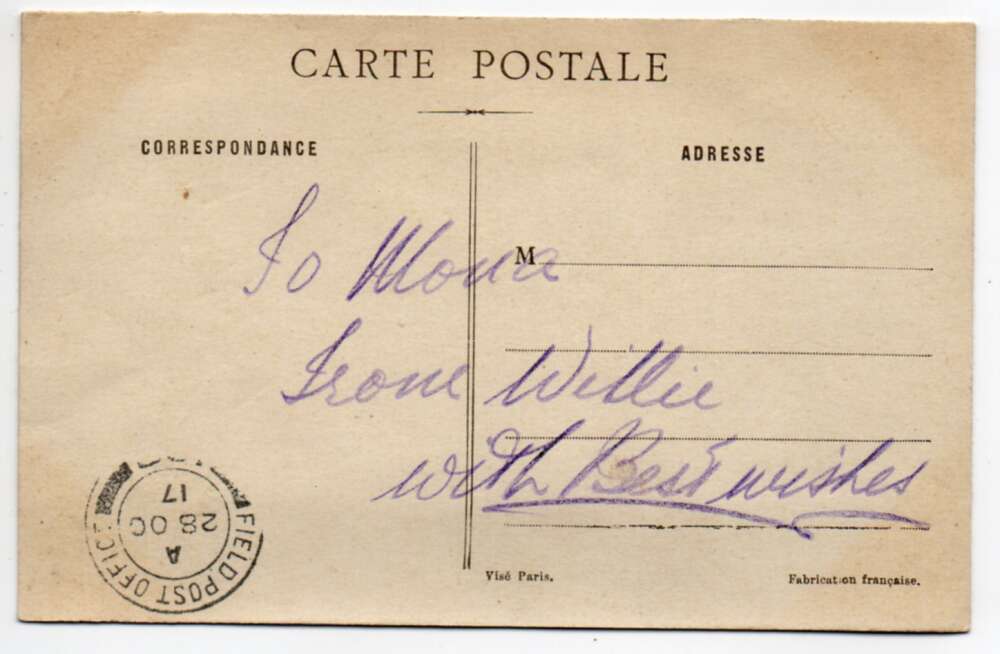 CARTE POSTALE
CORRESPONDANCE
ADRESSE
M
To Mona
From Willie
with Best wishes
Visé Paris.
Fabrication française.
FIELD POST OFFICE
A
28 OC
17